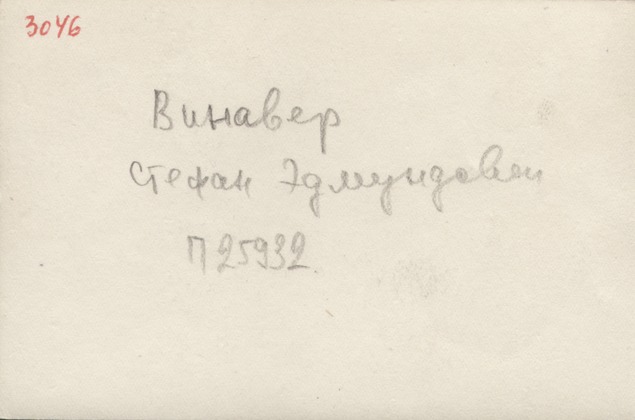 3046
Винавер
Стефан Эдмундович
П 25932